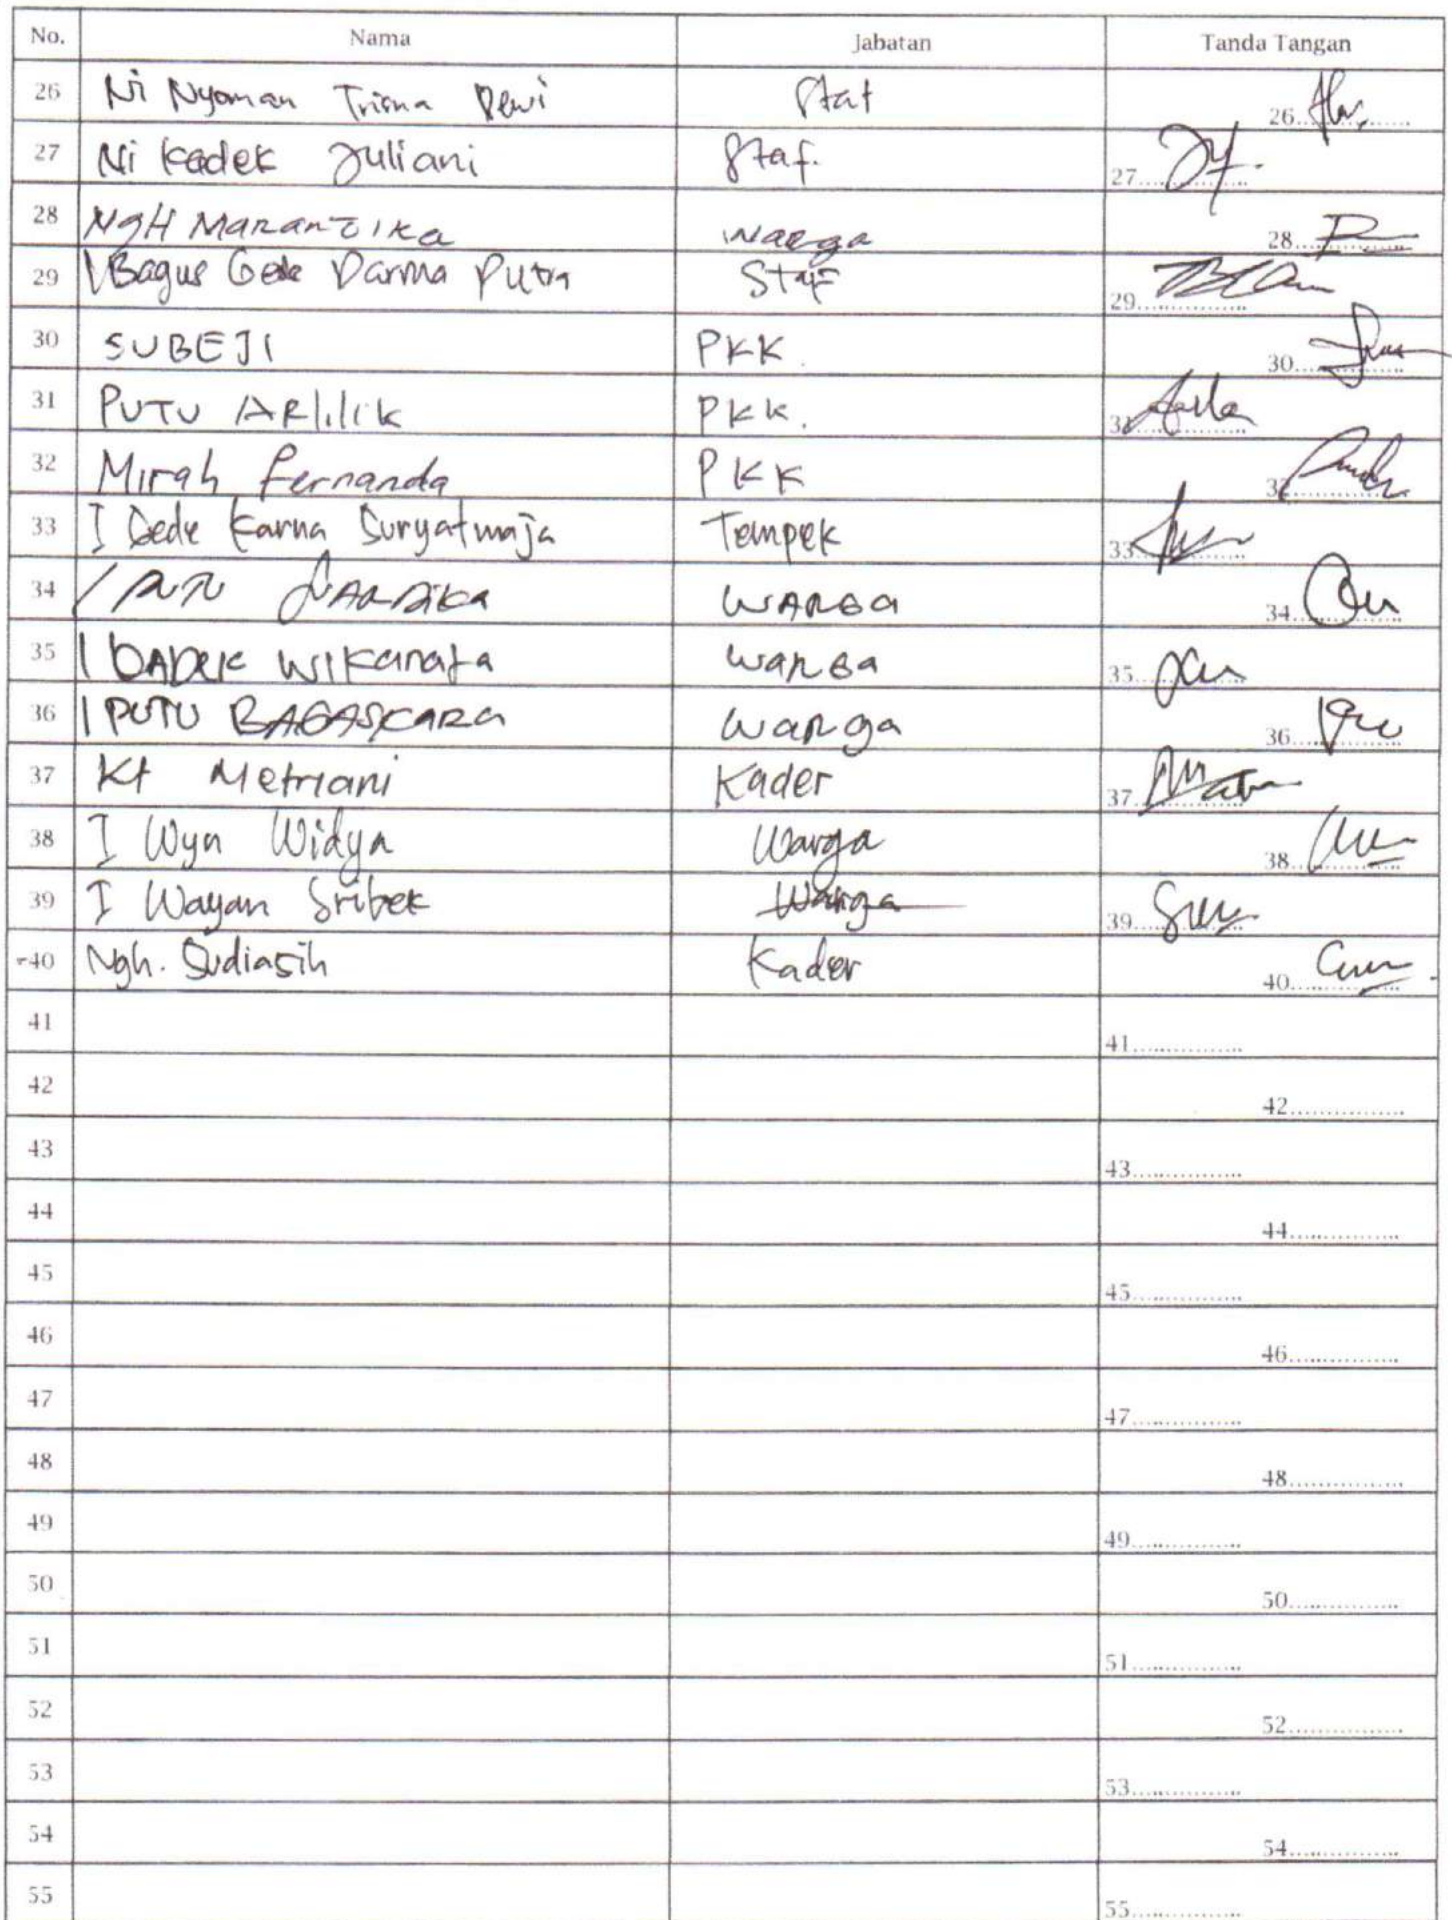 No. Nama Jabatan Tanda Tangan
26 Ni Nyoman Trisna Dewi Staf 26
27 Ni Kadek Juliani Staf. 27
28 Ngh Marantika Warga 28
29 I Bagus Gede Darma Putra Staf 29
30 SUBEJI PKK. 30
31 PUTU PKK. 31
32 Mirah Fernanda PKK 32
33 I Gede Karna Suryatmaja Tempek 33
34 WARGA 34
35 I WIKanata WARGA 35
36 I PUTU BAGASKARA Warga 36
37 Kt Metriani Kader 37
38 I Wyn Widya Warga 38
39 I Wayan Sribek Warga 39
40 Ngh. Sudiasih Kader 40
41 41
42 42
43 43
44 44
45 45
46 46
47 47
48 48
49 49
50 50
51 51
52 52
53 53
54 54
55 55